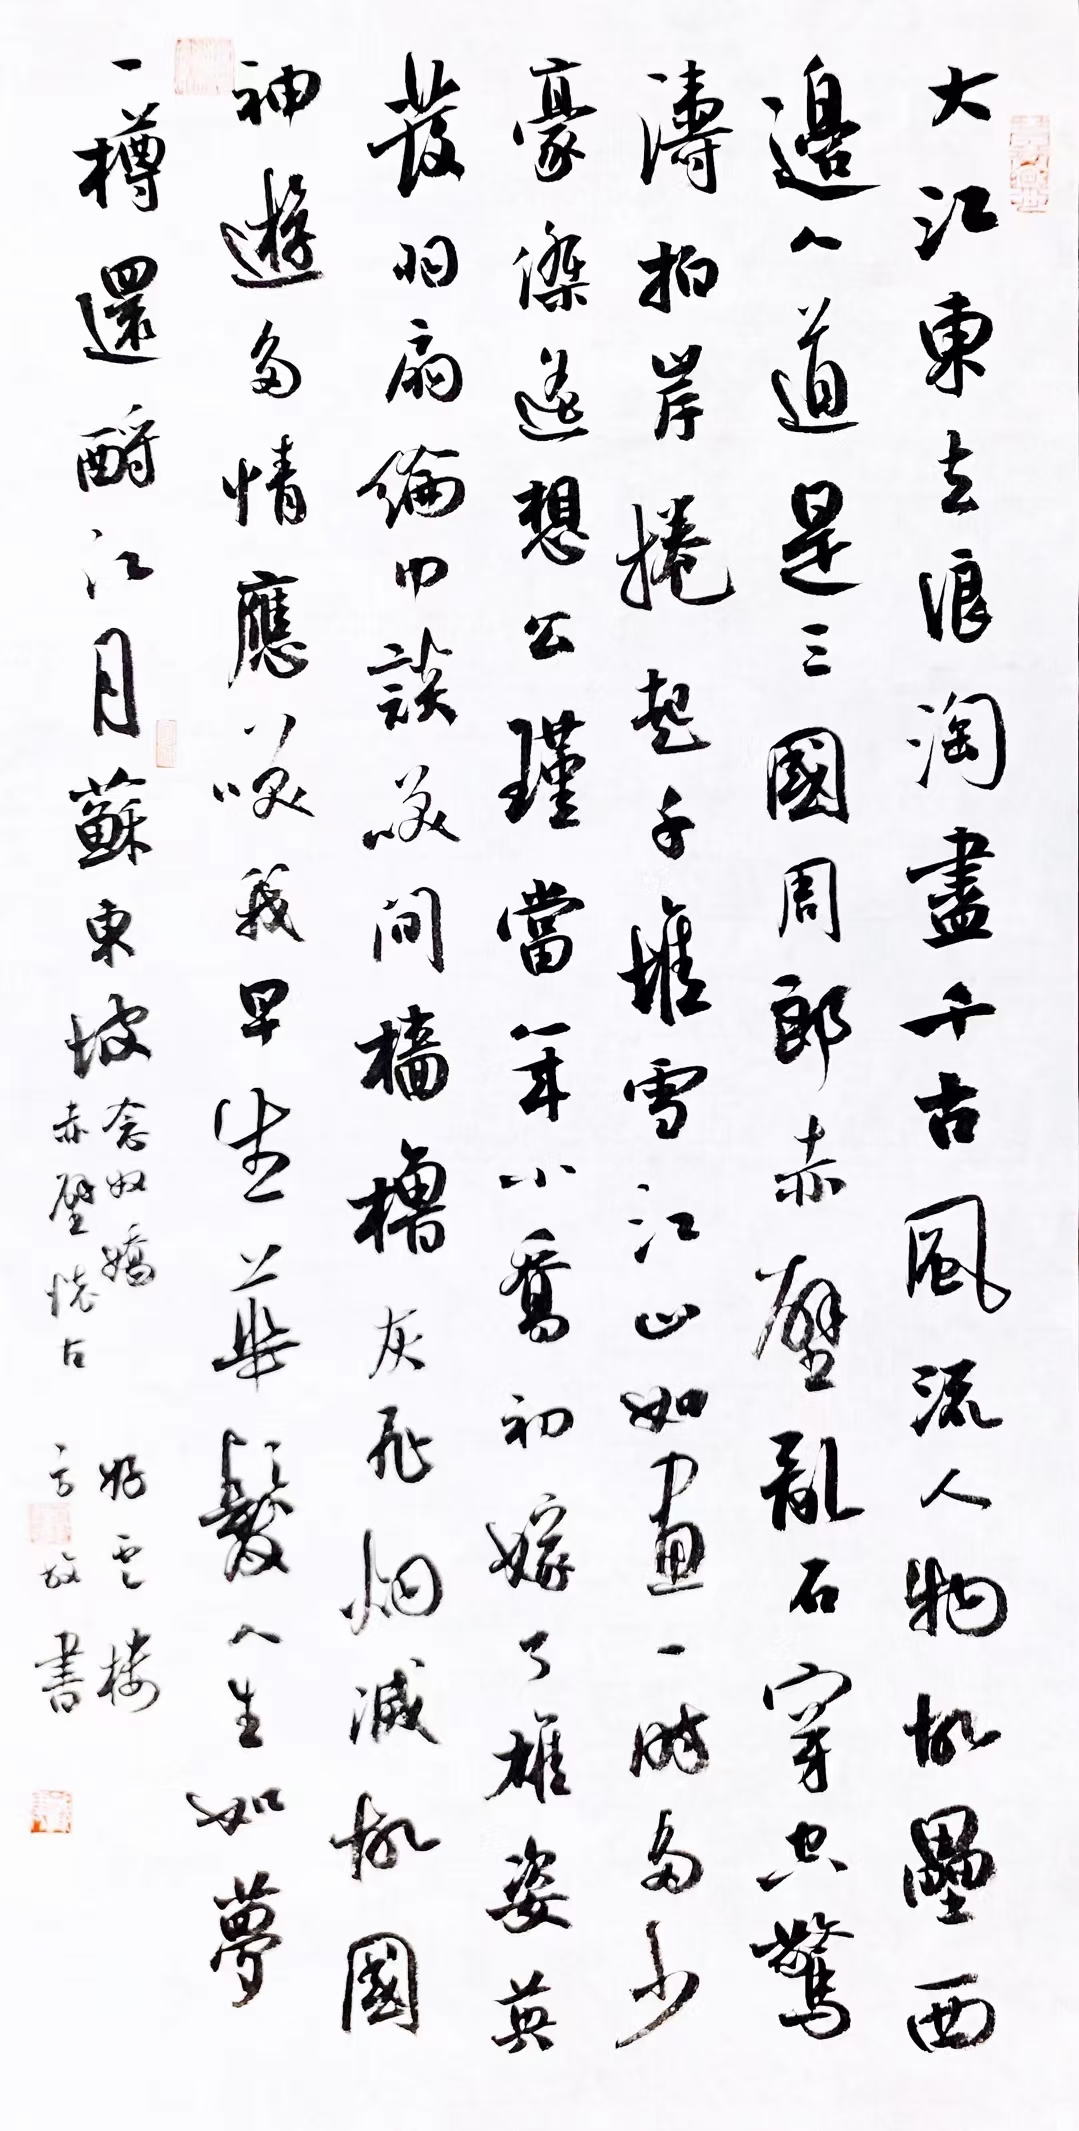 大江東去浪淘盡千古風流人物故壘西
邊人道是三國周郎赤壁亂石穿空驚
濤拍岸捲起千堆雪江山如畫一時多少
豪傑遙想公瑾當年小喬初嫁了雄姿英
發羽扇綸巾談笑間檣櫓灰飛烟滅故國
神遊多情應笑我早生華髮人生如夢
一樽還酹江月蘇東坡
念奴嬌
赤壁懷古
樓
書